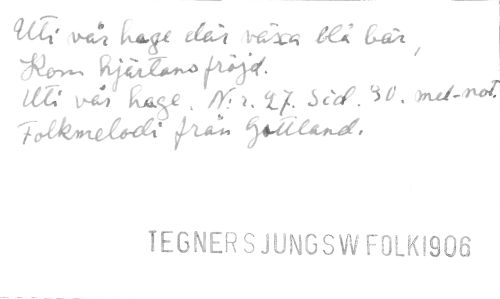 Uti vår hage där växa blå bär,
Kom hjärtans fröjd.
Uti vår hage. N:r. 27. Sid. 30. med not.
Folkmelodi från Gottland.
TEGNER SJUNG SW FOLK 1906